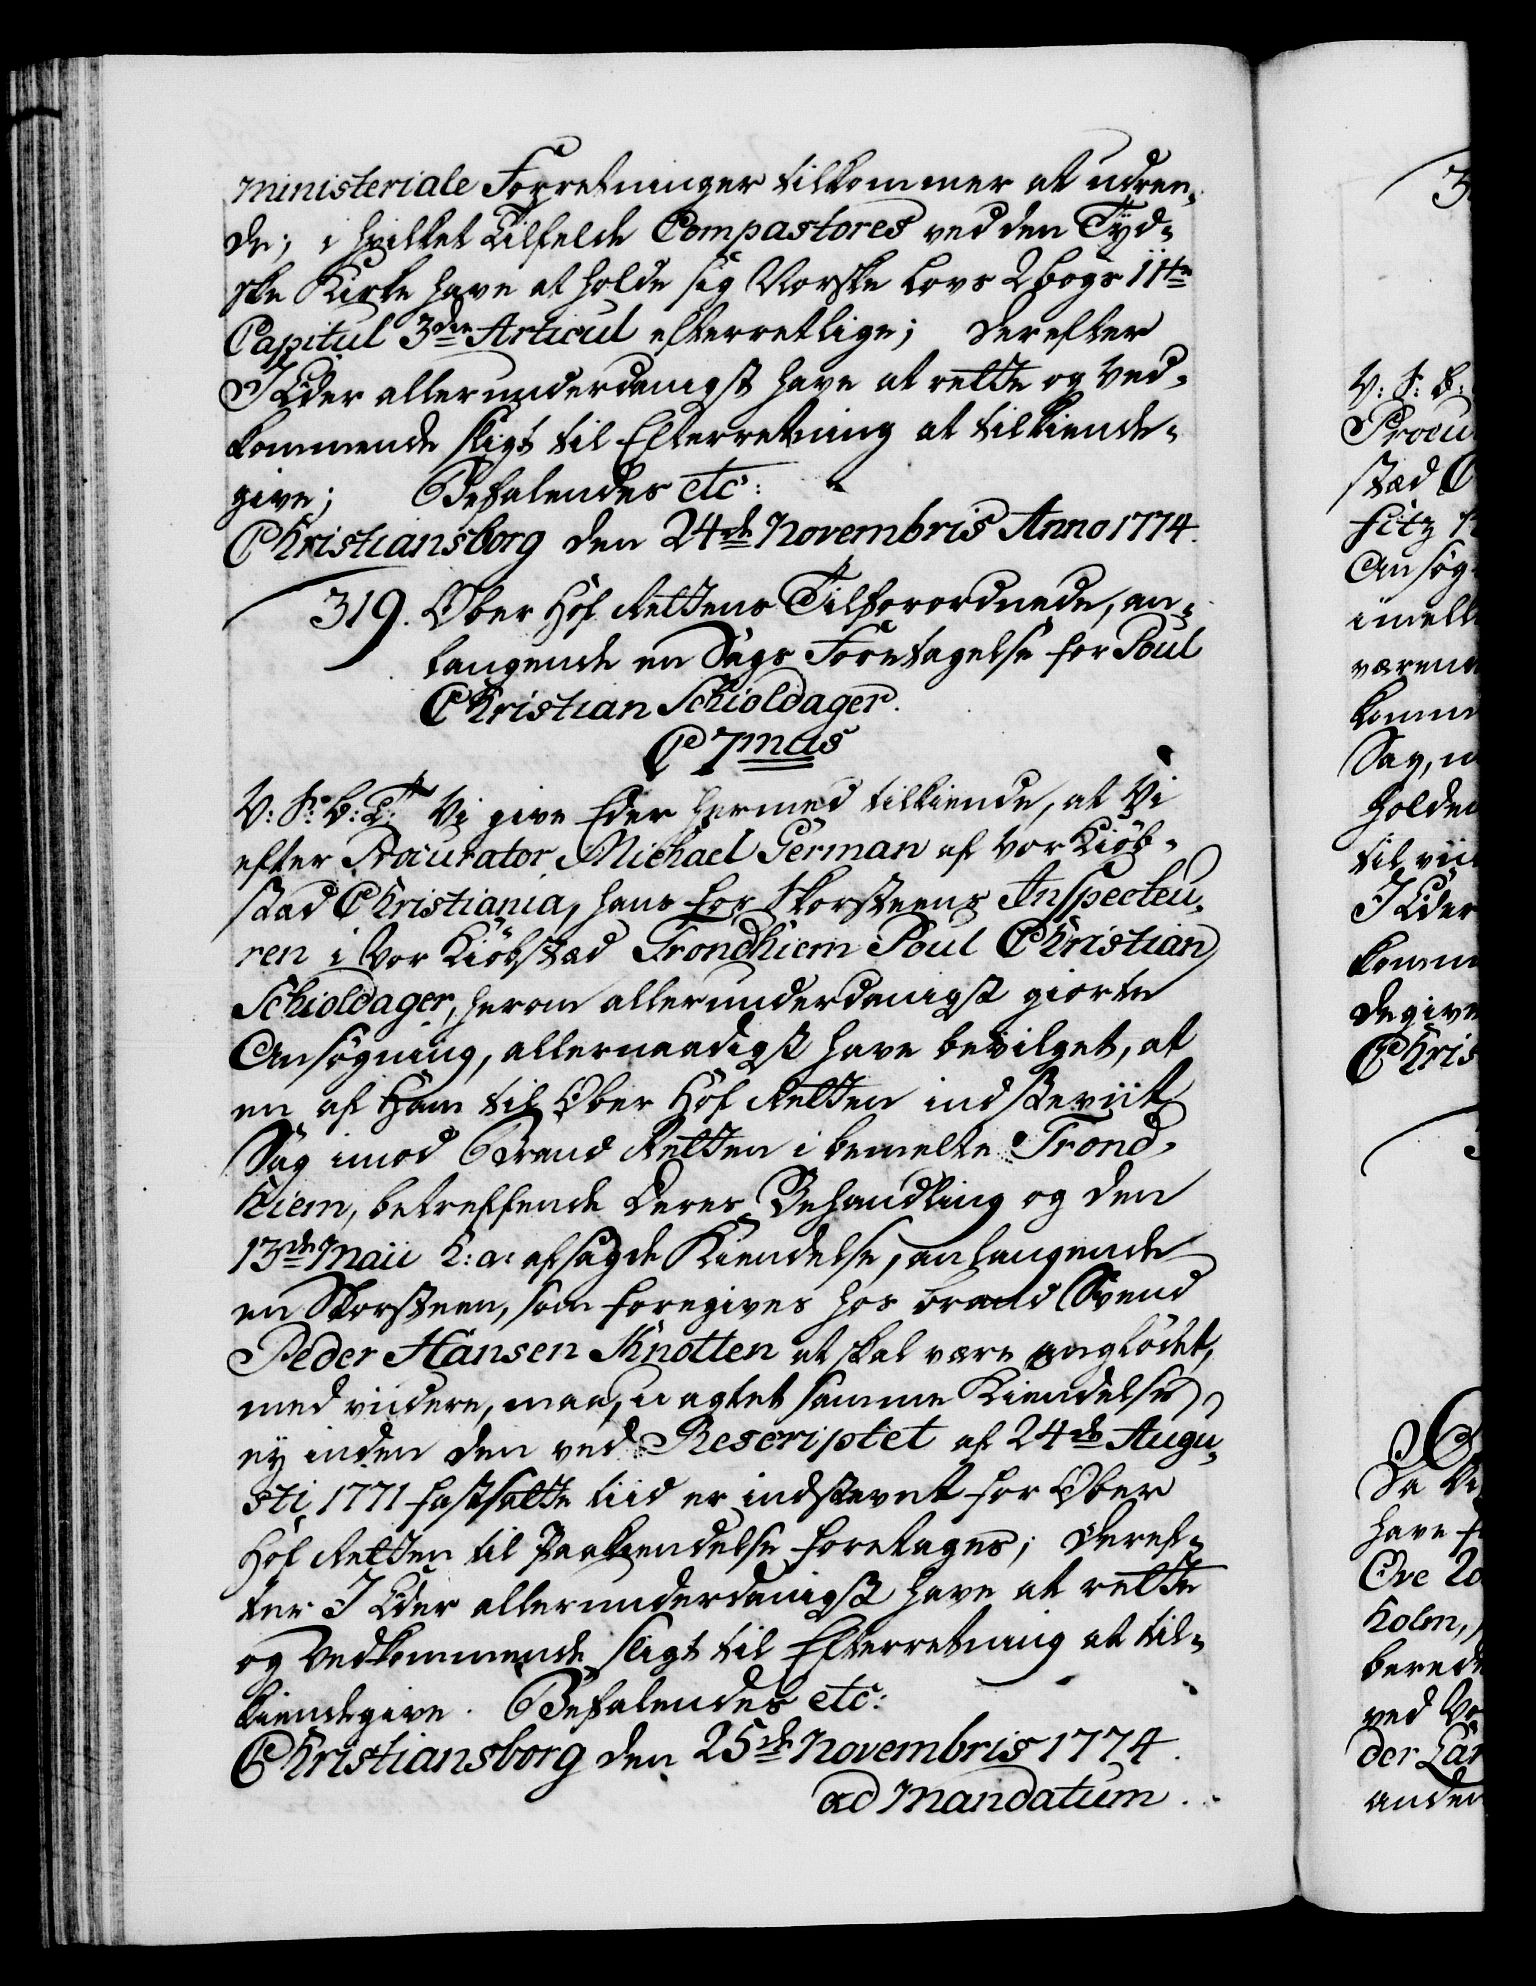 ministeriale Forretninger tilkommer at udren-
de; i hvilket Tilfelde Compastores ved den Tyd-
ske Kirke have at holde sig Norske Lovs 2 bogs 11te
Capitul 3die Articul efterretlige; Derefter
I Eder allerunderdanigst have at rette og Ved-
kommende sligt til Efterretning at tilkiende-
give; Befalendes etc:
Christiansborg den 24de Novembris Anno 1774.
319. Ober Hof Rettens Tilforordnede, an-
langende en Sags Foretagelse for Poul
Christian Schioldager.
C 7mus
V: S: b: T: Vi give Eder hermed tilkiende, at Vi
efter Procurator Michael German af vor Kiøb-
stad Christiania, hans for Skorsteens Inspecteu-
ren i vor Kiøbstad Trondhiem Poul Christian
Schioldager, herom allerunderdanigst giorte
Ansøgning, allernaadigst have bevilget, at
en af Ham til Ober Hof Retten indstevnt
Sag imod Brand Retten i bemelte Trond-
hiem, betreffende Deres Behandling og den
13de Maii h: a: afsagde Kiendelse, anlangende
en Skorsteen, som foregives hos Brand Svend
Peder Hansen Knotten at skal være anglödet,
med viidere, maa, uagtet samme Kiendelse
ey inden den ved Rescriptet af 24de Augu-
sti 1771 fastsatte tiid er indstevnt for Ober
Hof Retten til Paakiendelse foretages; Deref-
ter I Eder allerunderdanigst have at rette
og Vedkommende sligt til Efterretning at til-
kiendegive. Befalendes etc:
Christiansborg den 25de Novembris 1774.
ad Mandatum
V: S: b:
Procu
stad C
Ansøg
imell
værend
komme
Sag, u
holden
til vii
I Eder
komm
degive
Chris
Sa Vi
have f
Ove
holm,
bered
ved Vo
der Lar
anden